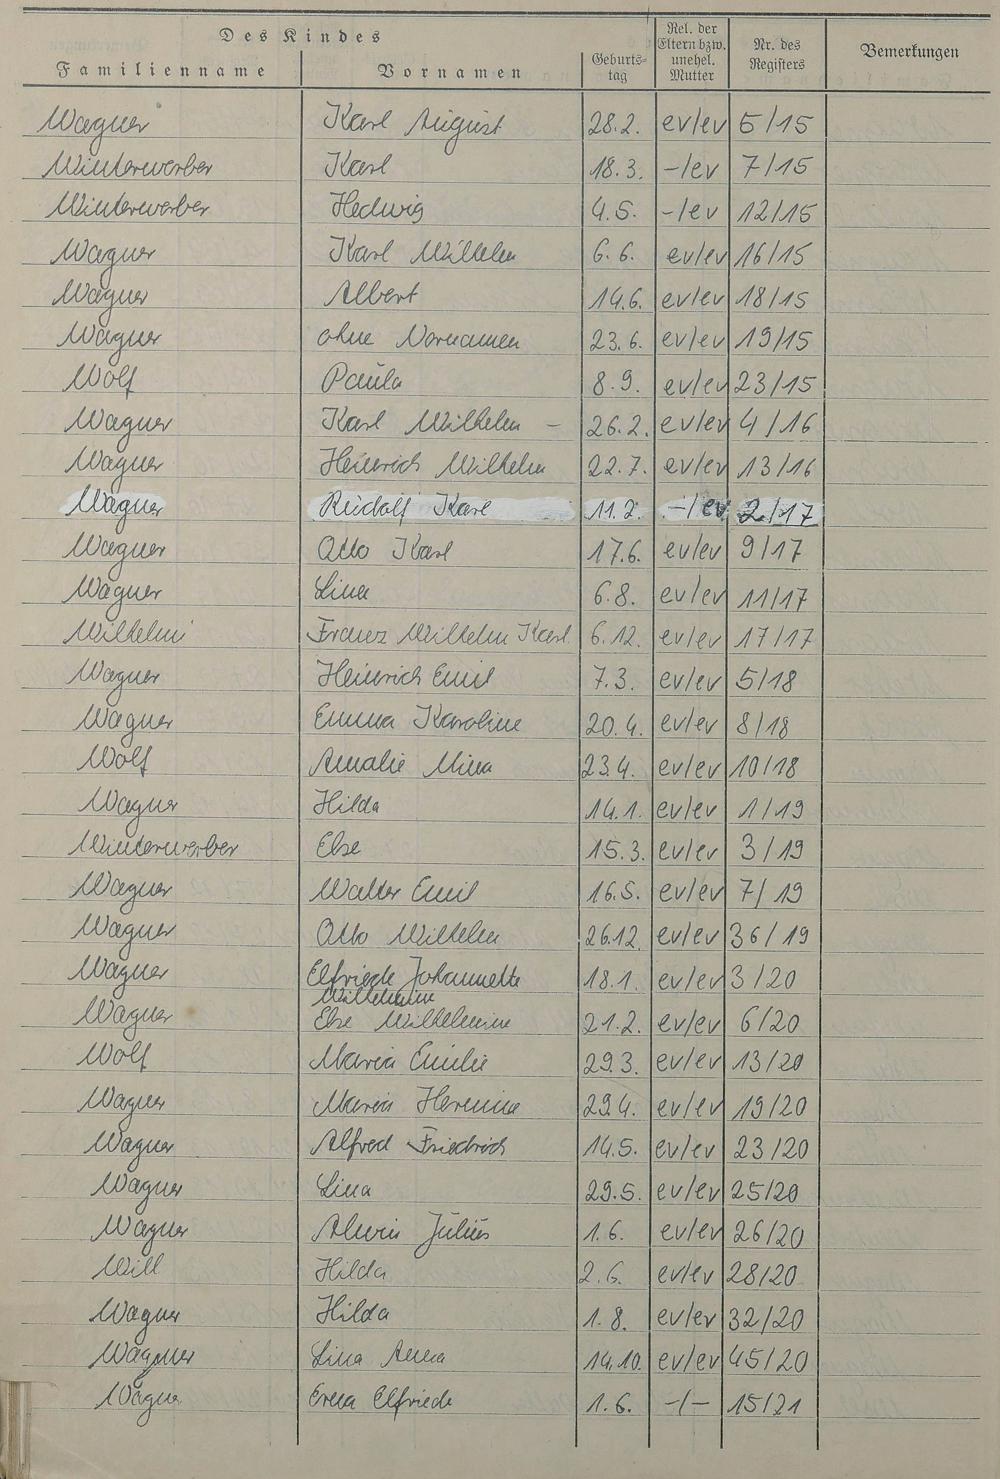 Des Kindes
Familienname Vornamen Geburts-tag Rel. der Eltern bzw. unehel. Mutter Nr. des Registers Bemerkungen
Wagner Karl August 28.2. ev/ev 5/15
Winterwerber Karl 18.3. -/ev 7/15
Winterwerber Hedwig 4.5. -/ev 12/15
Wagner Karl Wilhelm 6.6. ev/ev 16/15
Wagner Albert 14.6. ev/ev 18/15
Wagner ohne Vornamen 23.6. ev/ev 19/15
Wolf Paula 8.9. ev/ev 23/15
Wagner Karl Wilhelm - 26.2. ev/ev 4/16
Wagner Heinrich Wilhelm 22.7. ev/ev 13/16
Wagner Rudolf Karl 11.2. -/ev 2/17
Wagner Otto Karl 17.6. ev/ev 9/17
Wagner Lina 6.8. ev/ev 11/17
Wilhelmi Franz Wilhelm Karl 6.12. ev/ev 17/17
Wagner Heinrich Emil 7.3. ev/ev 5/18
Wagner Emma Karoline 20.4. ev/ev 8/18
Wolf Amalie Mina 23.4. ev/ev 10/18
Wagner Hilda 14.1. ev/ev 1/19
Winterwerber Else 15.3. ev/ev 3/19
Wagner Walter Emil 16.5. ev/ev 7/19
Wagner Otto Wilhelm 26.12. ev/ev 36/19
Wagner Elfriede Johannette 18.1. ev/ev 3/20
Wilhelmine
Wagner Else Wilhelmine 21.2. ev/ev 6/20
Wolf Maria Emilie 29.3. ev/ev 13/20
Wagner Maria Hermine 29.4. ev/ev 19/20
Wagner Alfred Friedrich 14.5. ev/ev 23/20
Wagner Lina 29.5. ev/ev 25/20
Wagner Alwin Julius 1.6. ev/ev 26/20
Will Hilda 2.6. ev/ev 28/20
Wagner Hilda 1.8. ev/ev 32/20
Wagner Lina Anna 14.10. ev/ev 45/20
Wagner Erna Elfriede 1.6. -/- 15/21